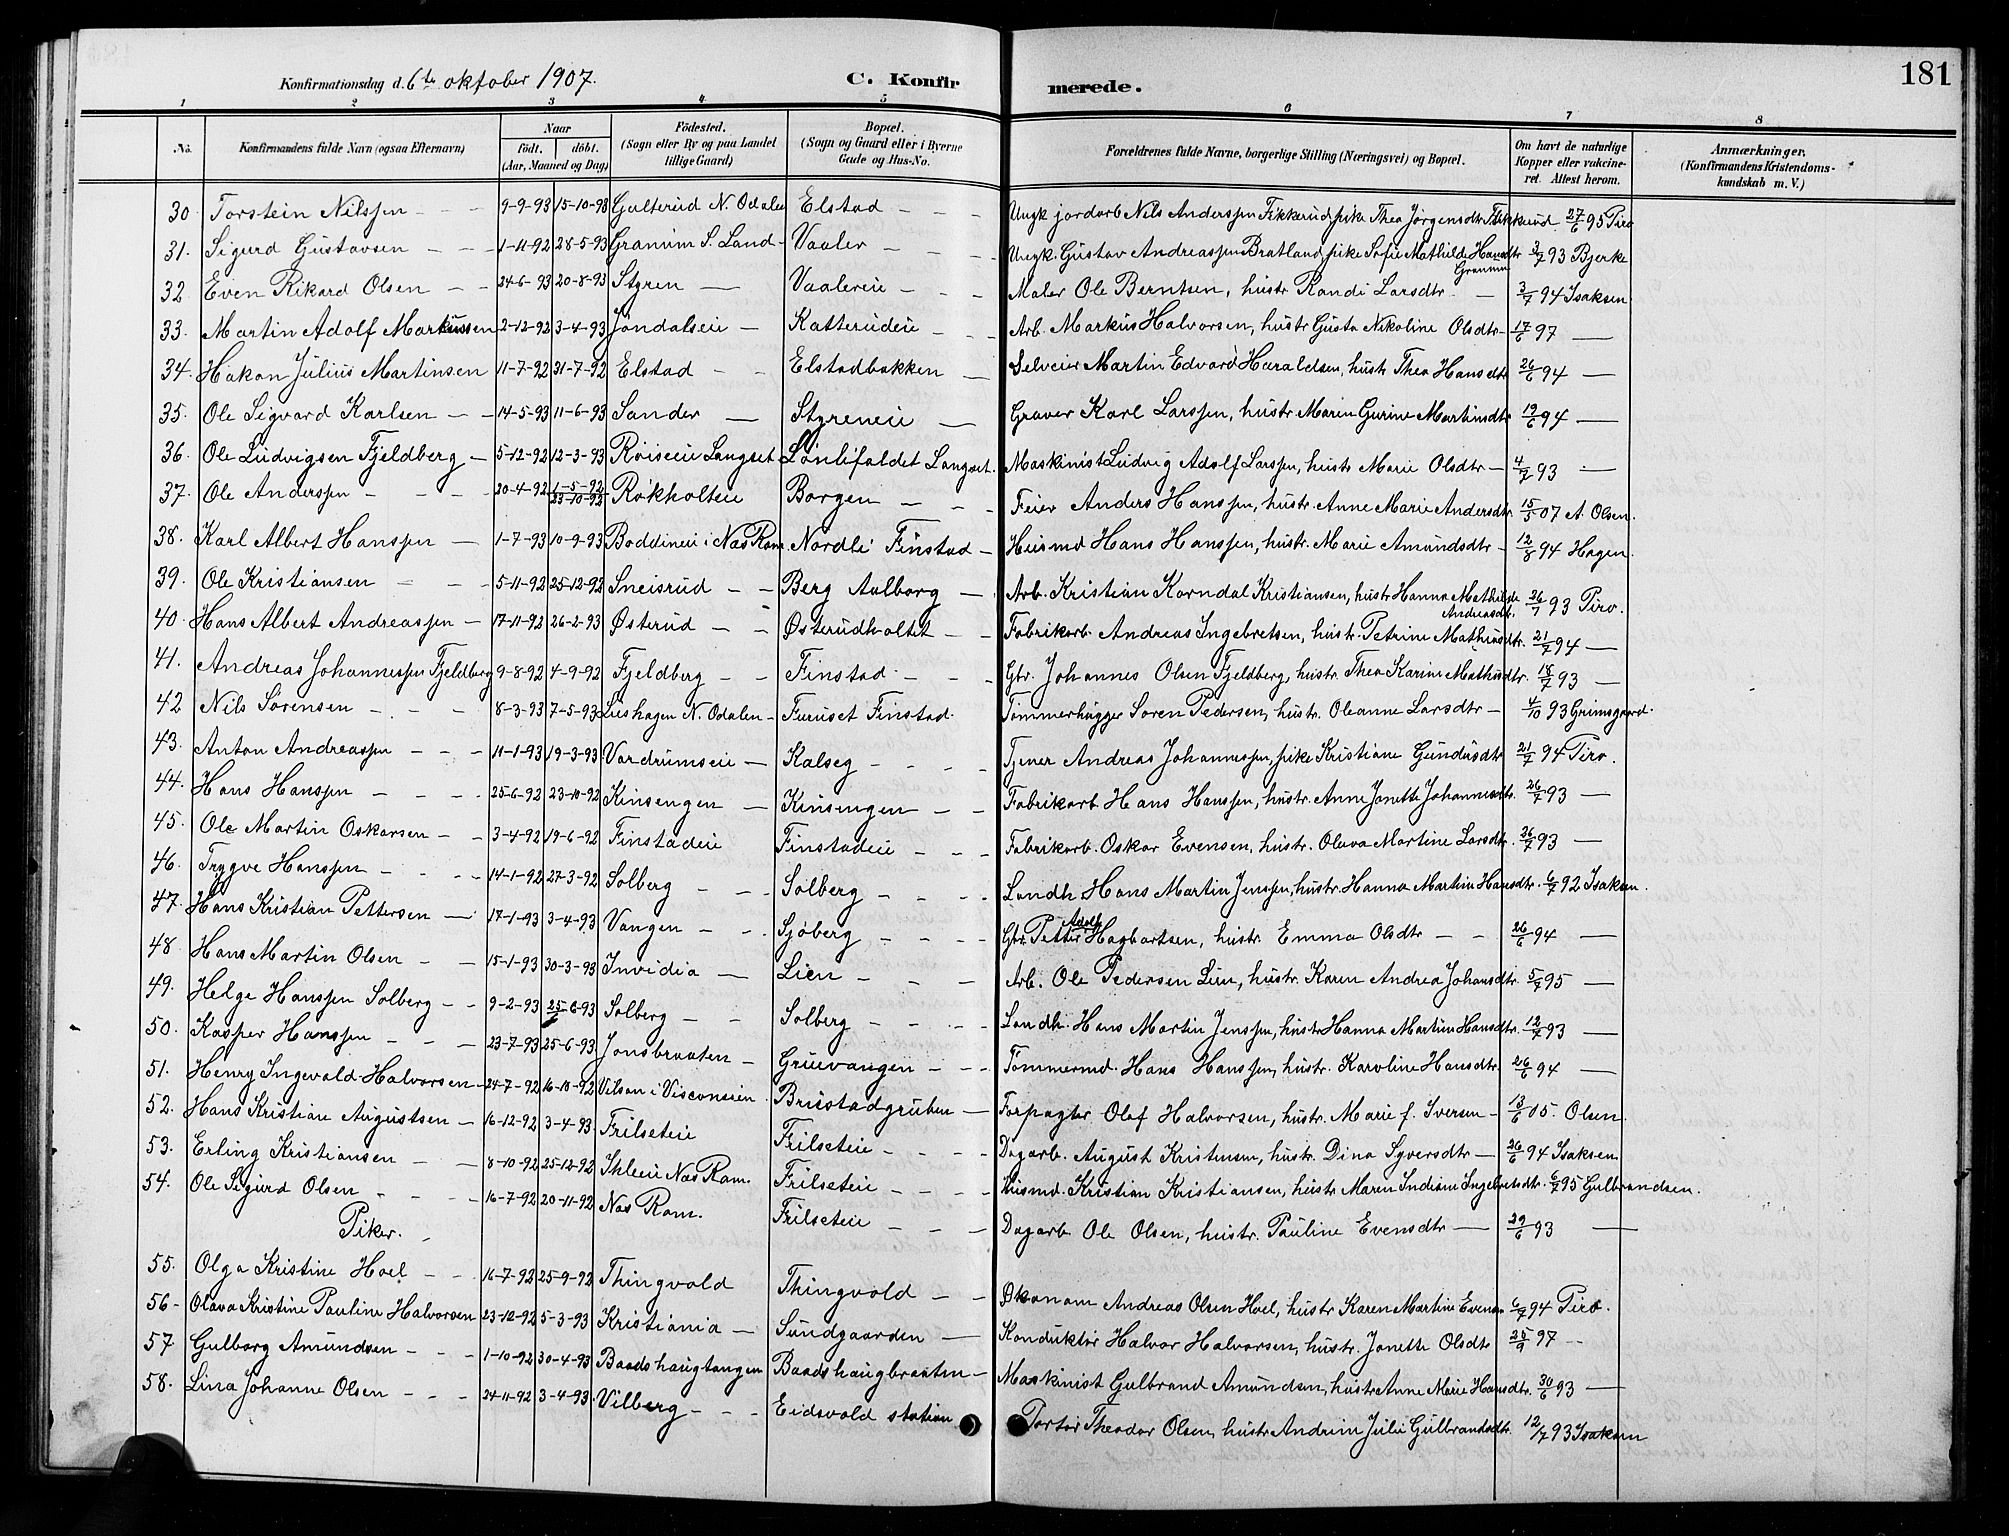 181
Konfirmationsdag d. 6te oktober 1907.
C. Konfirmerede.
1 2 3 4 5 6 7 8
No. Konfirmandens fulde Navn (ogsaa Efternavn) Naar født. døbt. (Aar, Maaned og Dag) Födested. (Sogn eller By og paa Landet tillige Gaard) Bopæl. (Sogn og Gaard eller i Byerne Gade og Hus-No. Forældrenes fulde Navne, borgerlige Stilling (Næringsvei) og Bopæl. Om havt de naturlige Kopper eller vakcineret. Attest herom. Anmærkninger. (Konfirmandens Kristendomskundskab m. V.)
30. Torstein Nilssen 9-9-93 15-10-93 Gulterud N. Odalen Elstad Ungk jordarb Nils Anderssen Fikkerud pike Thea Jørgensdtr Fikkerud 27/6 95 Piro
31. Sigurd Gustavsen 1-11-92 28-5-93 Granum S. Land Vaaler Ungk. Gustav Andreassen Bratland, pike Sofie Mathilde Hansdtr Granum 3/7 93 Bjerke
32 Even Rikard Olsen 24-6-93 20-8-93 Styren Vaalereie Maler Ole Berntsen, hustr Randi Larsdtr 3/7 94 Isaksen
33. Martin Adolf Markussen 2-12-92 3-4-93 Jøndalseie Katterudeie Arb. Markus Halvorsen, hustr Gusta Nikoline Olsdtr 17/6 97 —
34. Håkon Julius Martinsen 11-7-92 31-7-92 Elstad Elstadbakken Selveier Martin Edvard Haraldsen, hustr Thea Hansdtr 26/6 94 —
35. Ole Sigvard Karlsen 14-5-93 11-6-93 Sander Styreneie Graver Karl Larssen, hustr Maren Gurine Martinsdtr 19/6 94 —
36. Ole Ludvigsen Fjeldberg 5-12-92 12-3-93 Røiseie Langset Lønlifaldet Langset. Maskinist Ludvig Adolf Larssen, hustr Marie Olsdtr 4/7 93 —
37. Ole Anderssen 20-4-92 1-5-92 23-10-92 Røkholteie Borgen Feier Anders Hanssen, hustr. Anne Marie Andersdtr. 15/5 07 A. Olsen.
38. Karl Albert Hanssen 1-7-93 10-9-93 Boddineie i Næs Rom. Nordli Finstad Husmd Hans Hanssen, hustr. Marie Amundsdtr 12/8 94 Hagen
39. Ole Kristiansen 5-11-92 25-12-92 Sneisrud Berg Aalborg Arb. Kristian Korndal Kristiansen, hustr Hanna Mathilde Andreasdt. 26/7 93 Piro.
40. Hans Albert Andreassen 17-11-92 26-2-93 Østerud Østerudholtet Fabrikarb. Andreas Ingebretsen, hustr. Petrine Mathiasdtr. 21/7 94 —
41. Andreas Johannessen Fjeldberg 9-8-92 4-9-92 Fjeldberg Finstad Gbr. Johannes Olsen Fjeldberg, hustr. Thea Karine Mathisdtr. 18/7 93 —
42 Nils Sørensen 8-3-93 7-5-93 Lieshagen N. Odalen Furuset Finstad. Tømmerhugger Søren Pedersen, hustr. Oleanne Larsdtr 4/10 93 Grimsgaard.
43. Anton Andreassen 11-1-93 19-3-93 Vardrumseie Kalseg Tjener Andreas Johannessen, pike Kristiane Gundusdtr 21/7 94 Piro.
44. Hans Hanssen 25-6-92 23-10-92 Kinsengen Kinsengen Fabrikarb Hans Hanssen, hustr. Anne Janette Johannesdtr. 26/7 93 —
45. Ole Martin Oskarsen 3-4-92 19-6-92 Finstadeie Finstadeie Fabrikarb. Oskar Evensen, hustr. Olava Martine Larsdtr. 26/7 93 —
46. Trygve Hanssen 14-1-92 27-3-92 Solberg Solberg Landh. Hans Martin Jenssen, hustr. Hanna Martine Hansdtr. 6/7 92 Isaksen.
47. Hans Kristian Pettersen 17-1-93 3-4-93 Vangen Sjøberg Gbr. Petter Adolf Hagbartsen, hustr. Emma Olsdtr 26/6 94 —
48. Hans Martin Olsen 15-1-93 30-3-93 Invidia Lien Arb. Ole Pedersen Lien, hustr. Karen Andrea Johansdtr 5/7 95 —
49. Helge Hanssen Solberg 9-2-93 25-6-93 Solberg Solberg Landh. Hans Martin Jenssen, hustr Hanna Martine Hansdtr. 12/7 93 —
50. Kasper Hanssen 23-7-93 25-6-93 Jonsbraaten Gruevangen Tømmermd. Hans Hanssen, hustr. Karoline Hansdtr. 26/6 94 —
51. Henry Ingevald Halvorsen 24-7-92 16-10-92 Vilson i Visconsin Brustadgruben Forpagter Olaf Halvorsen, hustr. Marie f. Iversen 13/6 05. Olsen.
52. Hans Kristian Augustsen 16-12-92 3-4-93 Frilseteie Frilseteie Dagarb. August Kristensen, hustr. Dina Syversdtr 26/6 94 Isaksen
53. Erling Kristiansen 8-10-92 25-12-92 Ihleeie Næs Rom. Frilseteie Husmd. Kristian Kristiansen, hustr Maren Indiane Ingebretsdtr. 6/7 95 Gulbrandsen.
54. Ole Sigurd Olsen 16-7-92 20-11-92 Næs Rom. Frilseteie Dagarb Ole Olsen, hustr. Pauline Evensdtr 29/6 93 —
Piker.
55. Olga Kristine Hoel 16-7-92 25-9-92 Thingvold Thingvold Økonom Andreas Olsen Hoel, hustr Karen Martine Evensen 6/7 94 Piro.
56. Olava Kristine Pauline Halvorsen 23-12-92 5-3-93 Kristiania Sundgaarden Konduktør Halvor Halvorsen, hustr. Janette Olsdtr 25/9 97 —
57 Gulborg Amundsen 1-10-92 30-4-93 Baadshaugtangen Baadshaugbraaten Maskinist Gulbrand Amundsen, hustr Anne Marie Hansdtr. 30/6 93 —
58. Lina Johanne Olsen 24-11-92 3-4-93. Vilberg Eidsvold station Portør Theodor Olsen, hustr Andrine Julie Gulbrandsdtr 12/7 93 Isaksen